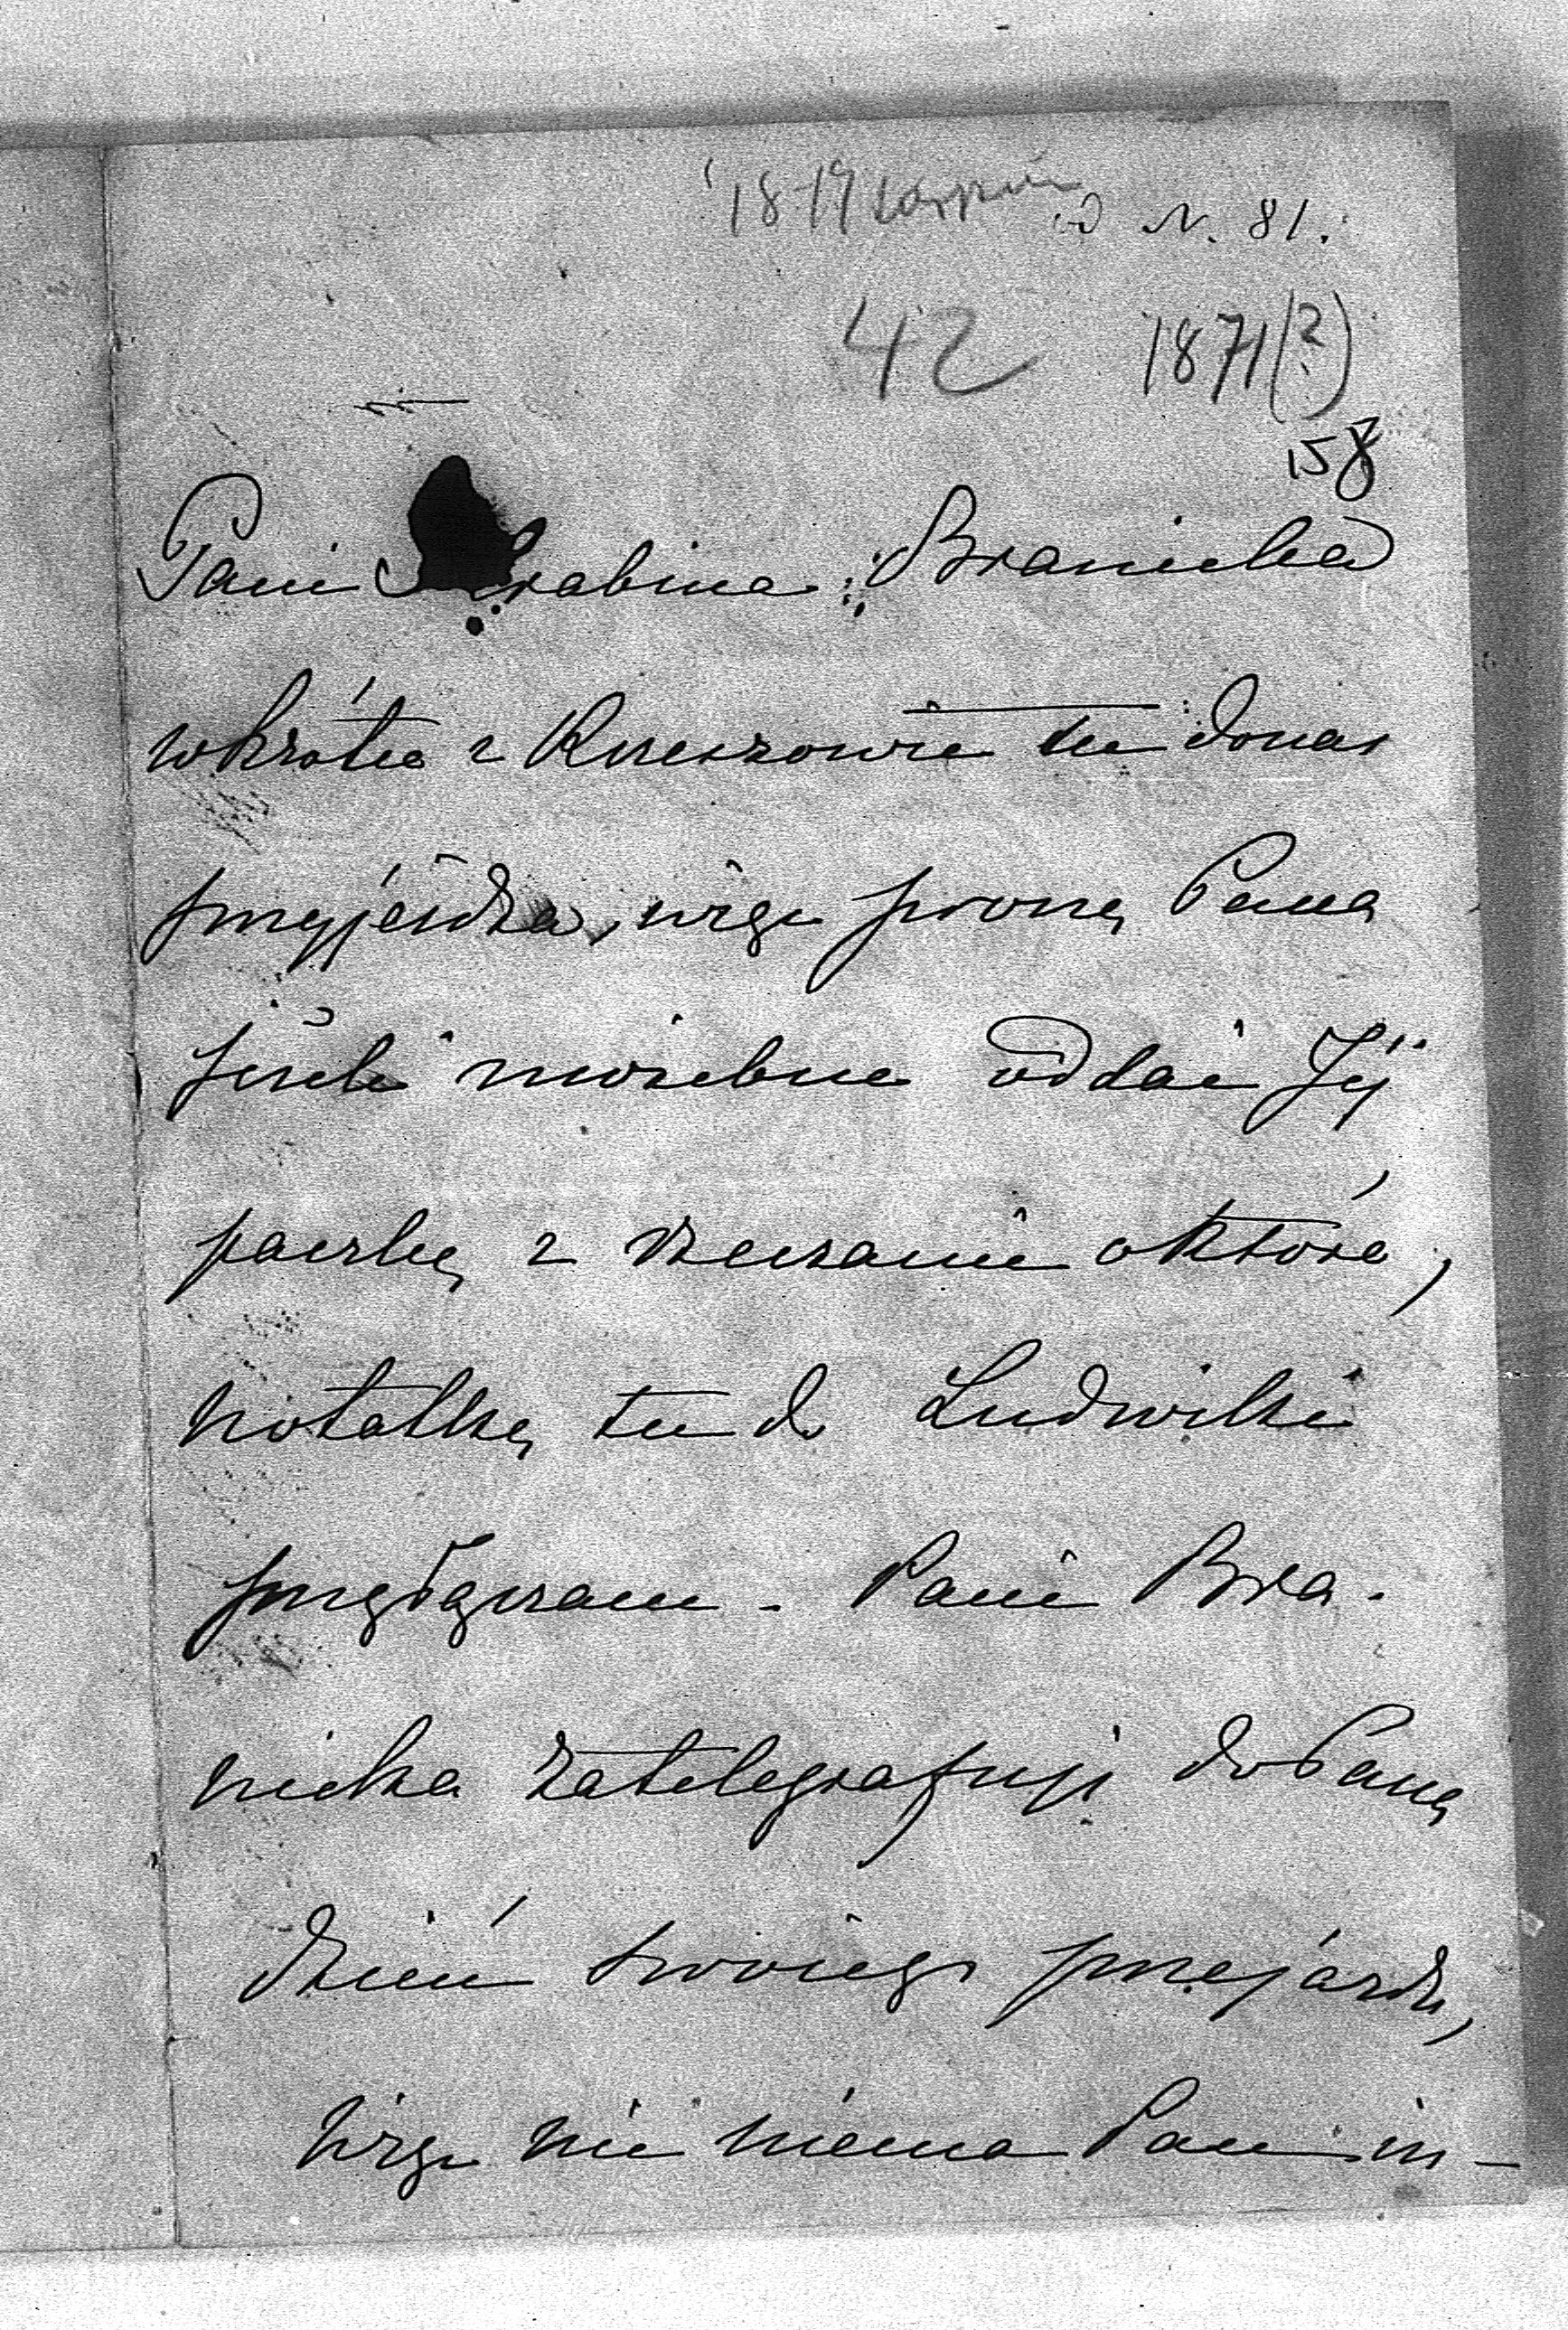 18-19 sierpnia
N. 81.
42 1871(?)
158
Pani Hrabina Branicka
wkrótce z Krzeszowic tu do nas
przyjeżdża, więc proszę Pana
jeżeli można oddać Jéj
paczkę z rzeczami o które,
notatkę tu do Ludwiki
przyłączam - Pani Bra-
nicka zatelegrafuje do Pana
dzień swoiego przejazdu,
więc nic niema Pan in-